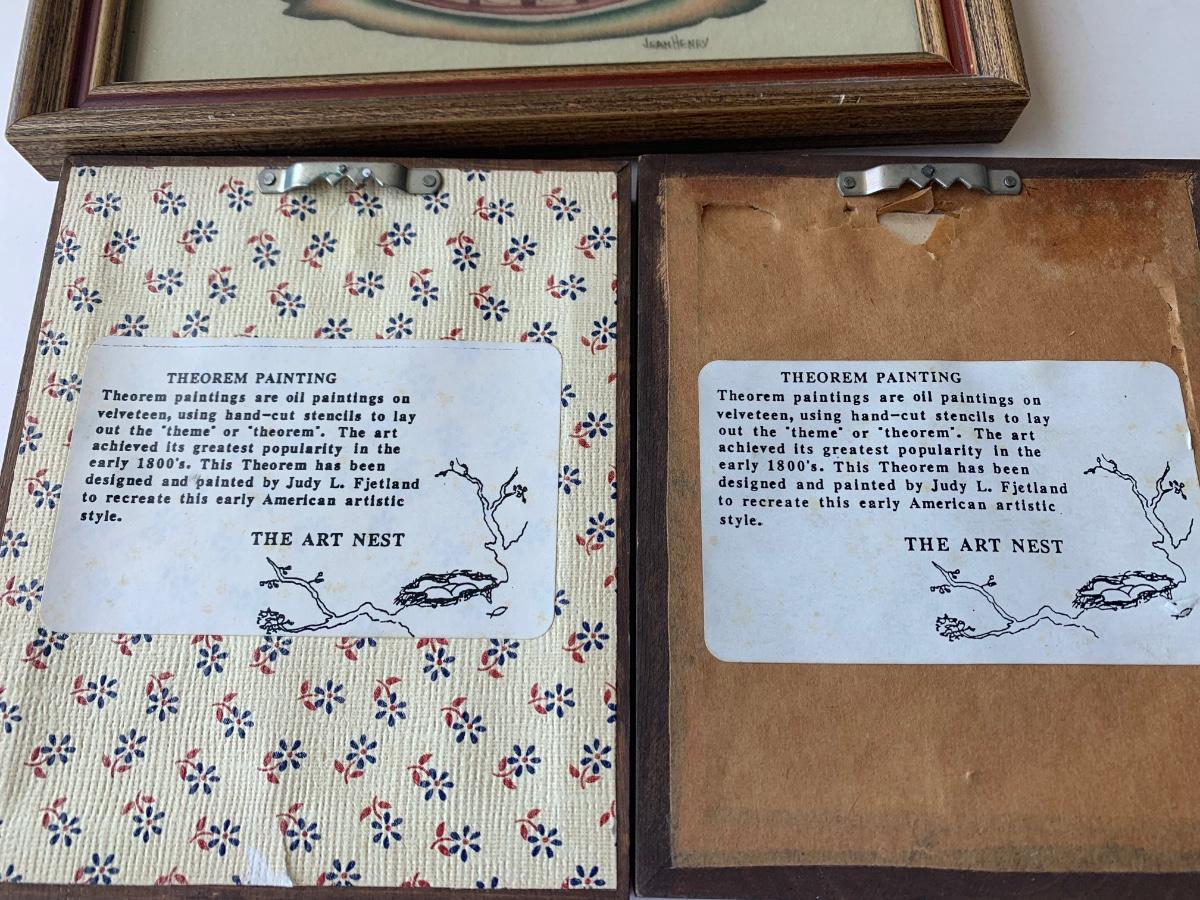 JEAN HENRY
THEOREM PAINTING
Theorem paintings are oil paintings on
velveteen, using hand-cut stencils to lay
out the "theme" or "theorem". The art
achieved its greatest popularity in the
early 1800's. This Theorem has been
designed and painted by Judy L. Fjetland
to recreate this early American artistic
style.
THE ART NEST
THEOREM PAINTING
Theorem paintings are oil paintings on
velveteen, using hand-cut stencils to lay
out the "theme" or "theorem". The art
achieved its greatest popularity in the
early 1800's. This Theorem has been
designed and painted by Judy L. Fjetland
to recreate this early American artistic
style.
THE ART NEST